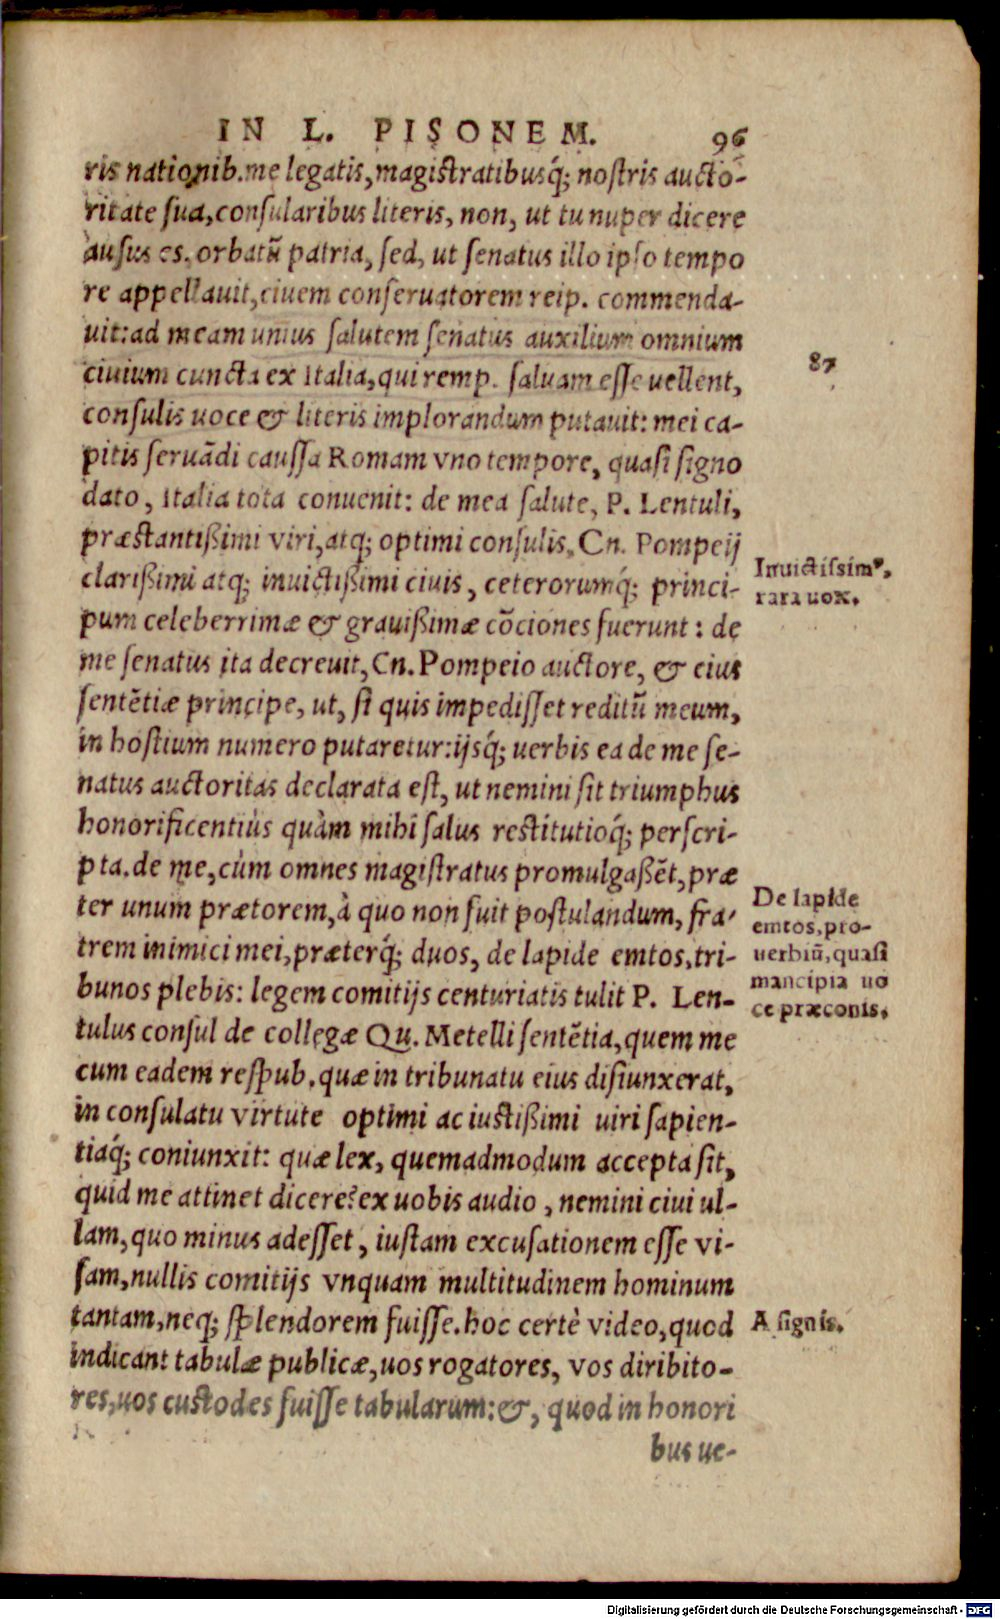 IN L. PISONEM. 96
ris nationib. me legatis, magistratibusq́; nostris aucto-
ritate sua, consularibus literis, non, ut tu nuper dicere
ausus es. orbatũ patria, sed, ut senatus illo ipso tempo
re appellauit, ciuem conseruatorem reip. commenda-
uit: ad meam unius salutem senatus auxilium omnium
ciuium cuncta ex Italia, qui remp. saluam esse uellent,
87
consulis uoce & literis implorandum putauit: mei ca-
pitis seruãdi caussa Romam vno tempore, quasi signo
dato, Italia tota conuenit: de mea salute, P. Lentuli,
præstantißimi viri, atq; optimi consulis, Cn. Pompeij
clarißimi atq; inuictißimi ciuis, ceterorumq́; princi-
Inuictissimꝰ,
rara uox.
pum celeberrimæ & grauißimæ cõciones fuerunt: de
me senatus ita decreuit, Cn. Pompeio auctore, & eius
sentẽtiæ principe, ut, si quis impedisset reditũ meum,
in hostium numero putaretur: ijsq́; uerbis ea de me se-
natus auctoritas declarata est, ut nemini sit triumphus
honorificentiùs quàm mihi salus restitutioq́; perscri-
pta. de me, cùm omnes magistratus promulgaßẽt, præ
ter unum prætorem, à quo non fuit postulandum, fra-
trem inimici mei, præterq́; duos, de lapide emtos, tri-
De lapide
emtos, pro-
uerbiũ, quasi
mancipia uo
ce præconis.
bunos plebis: legem comitijs centuriatis tulit P. Len-
tulus consul de collegæ Qu. Metelli sentẽtia, quem me
cum eadem respub. quæ in tribunatu eius disiunxerat,
in consulatu virtute optimi ac iustißimi uiri sapien-
tiaq́; coniunxit: quæ lex, quemadmodum accepta sit,
quid me attinet dicere? ex uobis audio, nemini ciui ul-
lam, quo minus adesset, iustam excusationem esse vi-
sam, nullis comitijs vnquam multitudinem hominum
tantam, neq; splendorem fuisse. hoc certè video, quod
A signis.
indicant tabulæ publicæ, uos rogatores, vos diribito-
res, uos custodes fuisse tabularum: &, quod in honori
bus ue-
Digitalisierung gefördert durch die Deutsche Forschungsgemeinschaft - DFG